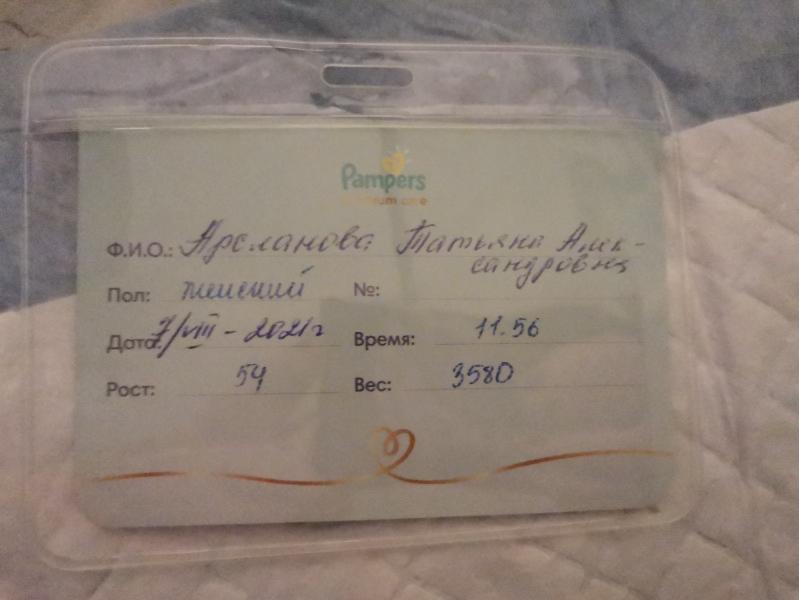 Pampers
premium care
Ф.И.О.: Арсланова Татьяна Алек-
сандровна
Пол: женский №:
Дата: 7/VIII - 2021г Время: 11.56
Рост: 54 Вес: 3580